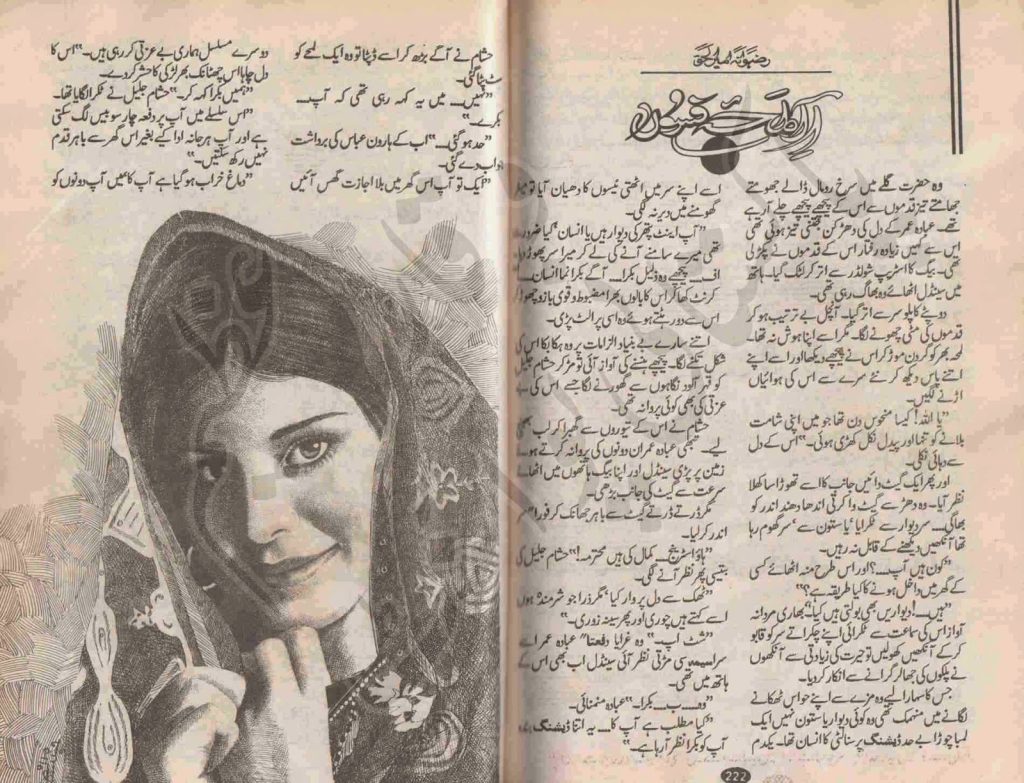 وہ حضرت گلے میں سرخ رومال ڈالے جھومتے
جھامتے تیز قدموں سے اس کے پیچھے پیچھے چلے آ رہے
تھے۔ عبادہ عمر کے دل کی دھڑکن جتنی تیز ہوئی تھی
اس سے کہیں زیادہ رفتار اس کے قدموں نے پکڑ لی
تھی۔ بیگ کا اسٹریپ شولڈر سے اتر کر لٹک گیا۔ ہاتھ
میں سینڈل اٹھائے وہ بھاگ رہی تھی۔
دوپٹے کا پلو سر سے اتر گیا۔ آنچل بے ترتیب ہو کر
قدموں کی مٹی چھونے لگا۔ مگر اسے اپنا ہوش نہ تھا۔
لمحہ بھر کو گردن موڑ کر اس نے پیچھے دیکھا اور اسے اپنے
اتنے پاس دیکھ کر نئے سرے سے اس کی ہوائیاں
اڑنے لگیں۔
”یا اللہ! کیسا منحوس دن تھا جو میں اپنی شامت
بلانے کو تنہا اور پیدل نکل کھڑی ہوئی۔“ اس کے دل
سے دہائی نکلی۔
اور پھر ایک گیٹ دائیں جانب کا اسے تھوڑا سا کھلا
نظر آیا۔ وہ دھڑ سے گیٹ وا کرتی اندھا دھند اندر کو
بھاگی۔ سر دیوار سے ٹکرایا یا ستون سے، سر گھوم رہا
تھا آنکھیں دیکھنے کے قابل نہ رہیں۔
”کون ہیں آپ۔۔۔؟ اور اس طرح منہ اٹھائے کسی
کے گھر میں داخل ہونے کا کیا طریقہ ہے؟“
”ہیں۔۔۔! دیواریں بھی بولتی ہیں کیا“ بھاری مردانہ
آواز اس کی سماعت سے ٹکرائی اپنے چکراتے سر کو قابو
کر کے آنکھیں کھولیں تو حیرت کی زیادتی سے آنکھوں
نے پلکوں کی جھالر گرانے سے انکار کر دیا۔
جس کا سہارا لیے وہ مزے سے اپنے حواس ٹھکانے
لگانے میں منہمک تھی وہ کوئی دیوار یا ستون نہیں ایک
لمبا چوڑا بے حد ڈیشنگ پرسنالٹی کا انسان تھا۔ یکدم
اسے اپنے سر میں اٹھتی ٹیسوں کا دھیان آیا تو
گھومنے میں دیر نہ لگی۔
”آپ اینٹ پتھر کی دیوار ہیں یا انسان، کیا ضرورت
تھی میرے سامنے آنے کی لے کر میرا سر پھوڑ دیا۔
اف۔۔۔ پیچھے وہ ذلیل بکرا۔۔۔ آگے بکرا نما انسان۔۔۔“
کرنٹ کھا کر اس کا بالوں بھرا مضبوط و قوی بازو چھوڑ
اس سے دور ہٹتے ہوئے وہ اسی پر الٹ پڑی۔
اتنے سارے بے بنیاد الزامات پر وہ ہکا بکا اس کی
شکل تکنے لگا۔ پیچھے ہنسنے کی آواز آئی تو مڑ کر حشام جلیل
کو قہر آلود نگاہوں سے گھورنے لگا جسے اس کی بے
عزتی کی بھی کوئی پروا نہ تھی۔
حشام نے اس کے تیوروں سے گھبرا کر لب بھینچ
لیے۔ تبھی عبادہ عمر ان دونوں کی پروا نہ کرتے ہوئے
زمین پر پڑی سینڈل اور اپنا بیگ ہاتھوں میں اٹھائے
سرعت سے گیٹ کی جانب بڑھی۔
مگر ڈرتے ڈرتے گیٹ سے باہر جھانک کر فورا سر
اندر کر لیا۔
”ہاؤ اسٹرینج۔۔۔ کمال کی ہیں محترمہ!“ حشام جلیل کی
بتیسی پھر نظر آنے لگی۔
”ٹھک سے دل پر وار کیا، مگر ذرا جو شرمندہ ہوں
اسے کہتے ہیں چوری اور پھر سینہ زوری۔“
”شٹ اپ۔“ وہ غرایا دفعتا عبادہ عمر اسے
سراسیمہ سی مڑتی نظر آئی سینڈل اب بھی اس کے
ہاتھ میں تھی۔
”وہ۔۔۔ ب۔۔۔ بکرا۔“ عبادہ منمنائی۔
”کیا مطلب ہے آپ کا۔۔۔ یہ اتنا ڈیشنگ بندہ
آپ کو بکرا نظر آ رہا ہے۔“
222
حشام نے آگے بڑھ کر اسے ڈپٹا تو وہ ایک لمحے کو
سٹپٹا گئی۔
”نہیں۔۔۔ میں یہ کہہ رہی تھی کہ آپ۔۔۔
بکرے۔“
”حد ہو گئی۔۔۔“ اب کے ہارون عباس کی برداشت
جواب دے گئی۔
”ایک تو آپ اس گھر میں بلا اجازت گھس آئیں
دوسرے مسلسل ہماری بے عزتی کر رہی ہیں۔“ اس کا
دل چاہا اس چھٹانک بھر لڑکی کا حشر کر دے۔
”ہمیں بکرا کہہ کر۔“ حشام جلیل نے ٹکڑا لگایا تھا۔
اس سلسلے میں آپ پر دفعہ چار سو بیس لگ سکتی
ہے اور آپ ہرجانہ ادا کیے بغیر اس گھر سے باہر قدم
نہیں رکھ سکتیں۔“
”دماغ خراب ہو گیا ہے آپ کا، میں آپ دونوں کو